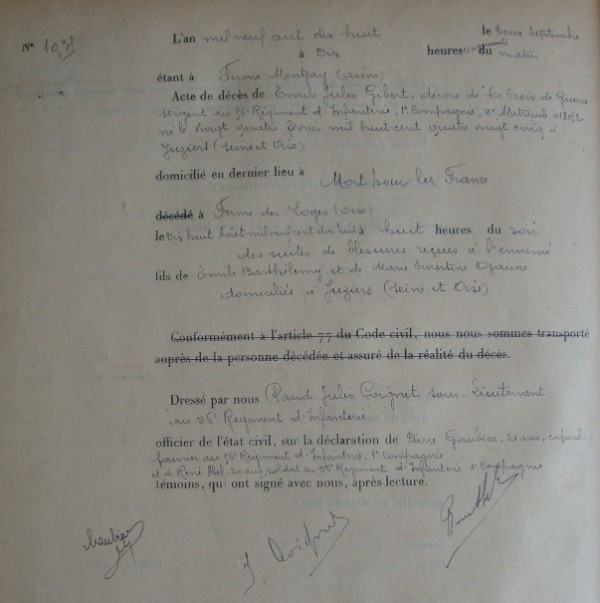 N° 10.
L'an mil neuf cent dix huit le deux Septembre
à Dix heures cinquante du matin
étant à Ferme Monkay (aisne)
Acte de décès de Emile Jules Gibert, décoré de la Croix de Guerre
sergent au 36 Régiment d'Infanterie, 1e Compagnie, n° Matricule
né le vingt quatre février mil huit cent quatre vingt cinq à
Juziers (seine et Oise)
domicilié en dernier lieu à Mort pour la France
décédé à Ferme des Loges (Oise)
le Dix huit Août mil neuf cent dix huit à huit heures du soir
des suites de blessures reçues à l'ennemi
fils de Emile Barthélemy et de Marie Ernestine
domiciliés à Juziers (Seine et Oise)
Conformément à l'article 77 du Code civil, nous nous sommes transporté
auprès de la personne décédée et assuré de la réalité du décès.
Dressé par nous Jules Coignet sous-Lieutenant
au 36 Régiment d'Infanterie
officier de l'état civil, sur la déclaration de Pierre Gaubiac, 21 ans, caporal-
fourrier au 36 Régiment d'Infanterie, 1e Compagnie
et de René 20 ans, soldat au 36 Régiment d'Infanterie 1e Compagnie
témoins, qui ont signé avec nous, après lecture.
Gaubiac
J. Coignet